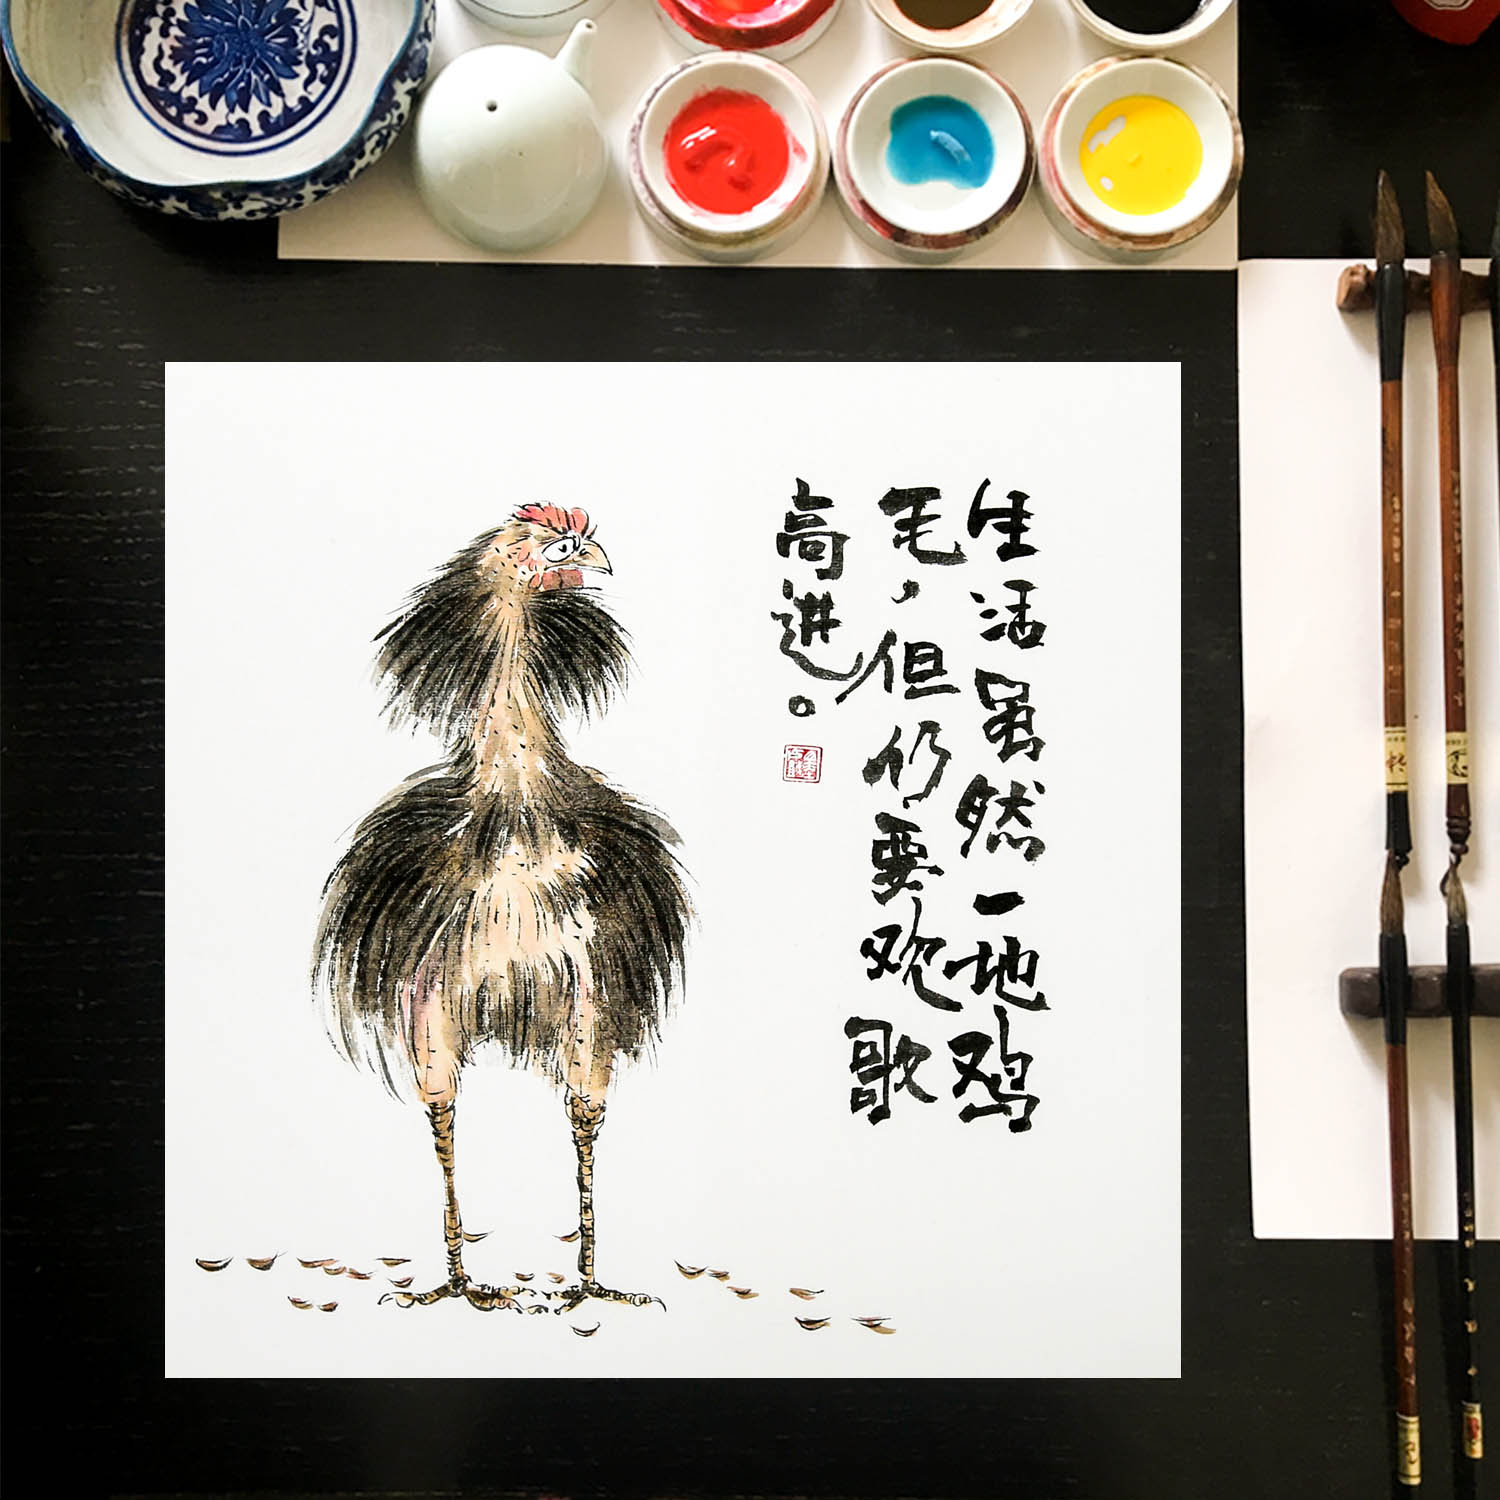 生活虽然一地鸡
毛，但仍要欢歌
高进。